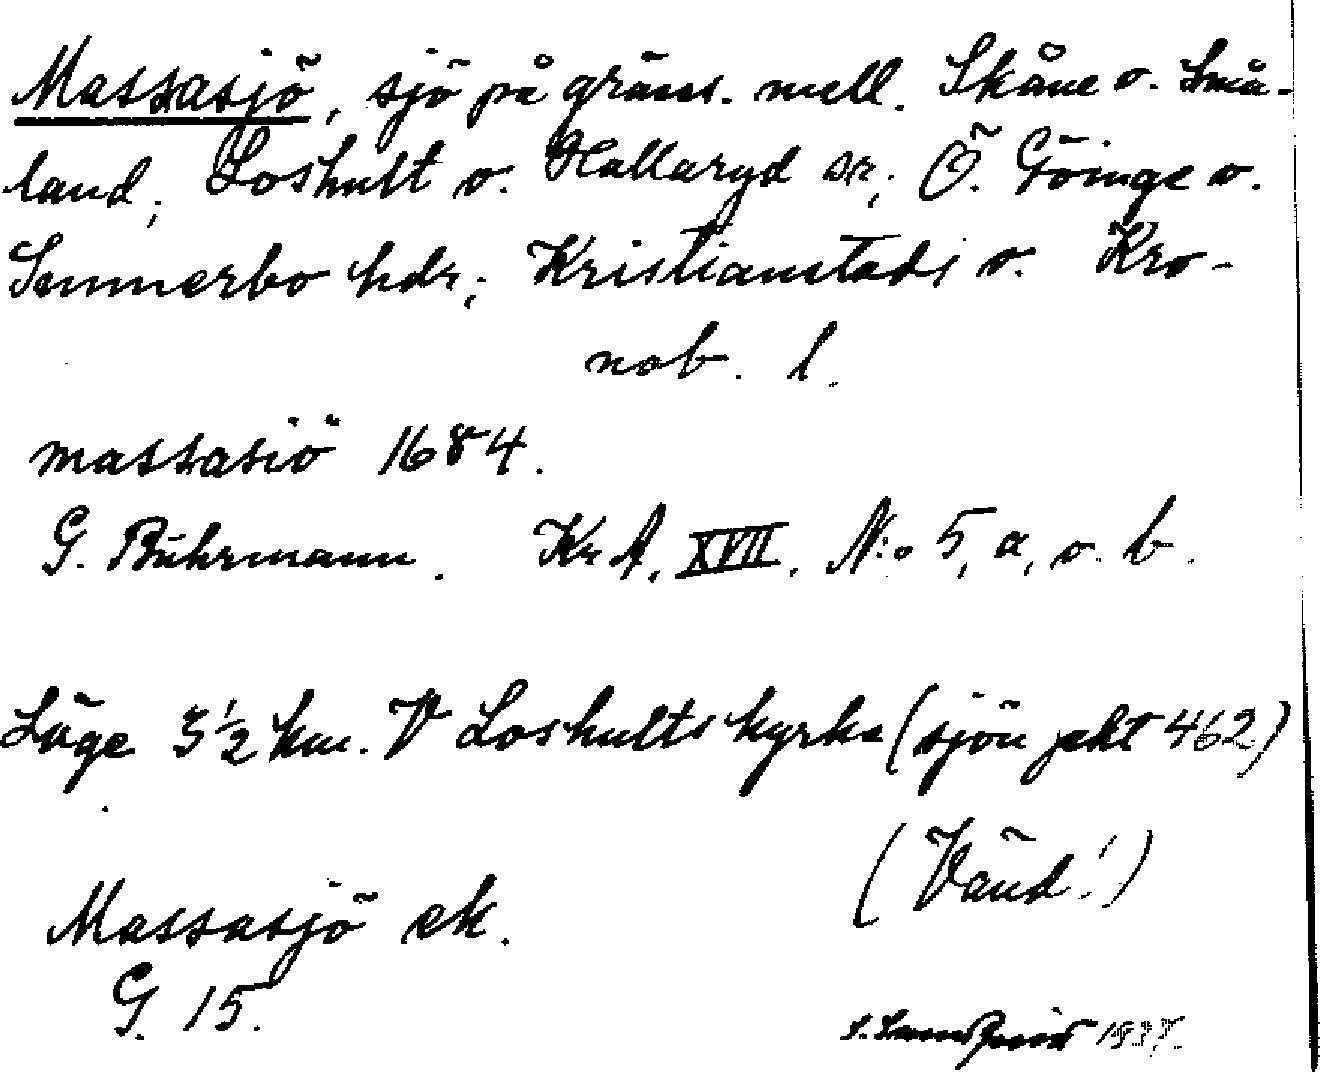 Massasjö, sjö på gräns. mell. Skåne o. Små-
land; Loshult o. Hallaryd sr; Ö. Göinge o.
Sunnerbo hdr; Kristianstads o. Kro-
nob. l.
massasiö 1684.
G. Buhrmann. Kr A. XVII. N:o 5, a, o. b.
Läge 3 1/2 km. V Loshults kyrka (sjön pkt 462)
(Vänd!)
Massasjö ek.
G. 15.
1937.